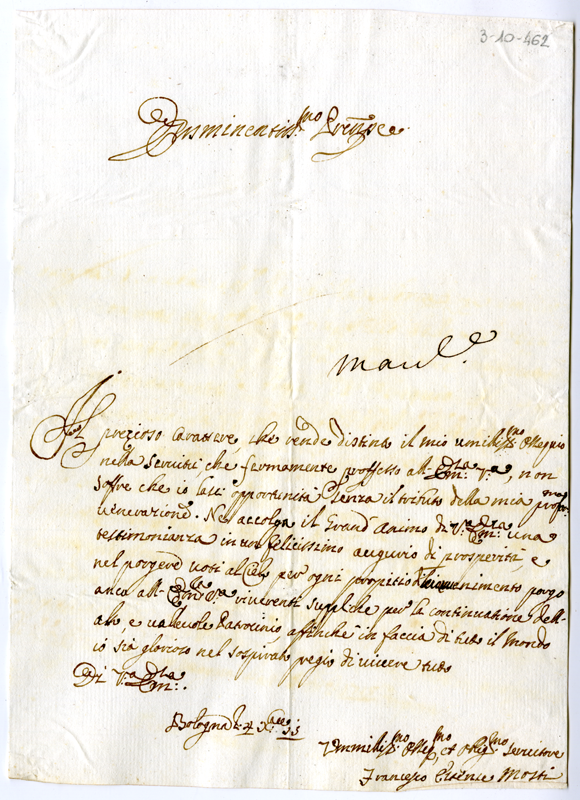 3-10-462
Eminentis.mo Prencipe
Il prezioso Carattere, che rende distinto il mio umilis.mo ossequio
nella servitù che fermamente professo all'Em.za V.ra, non
soffre che io lasci opportunità senza il tributo della mia
venerazione. Ne accolga il Grand'animo di V.ra Em.za una
testimonianza in un felicissimo augurio di prosperità e
nel porgere voti al Cielo per ogni propitio porgo
anco all'Em.za V.ra riverenti suppliche per la continuatione dell'
alto, e valevole Patrocinio, affinche in faccia di tutto il Mondo
io sia glorioso nel sospirato pregio di vivere tutto
Di V.ra Em.za
Bologna
Umilis.mo et Servitore
Francesco Estense Mosti